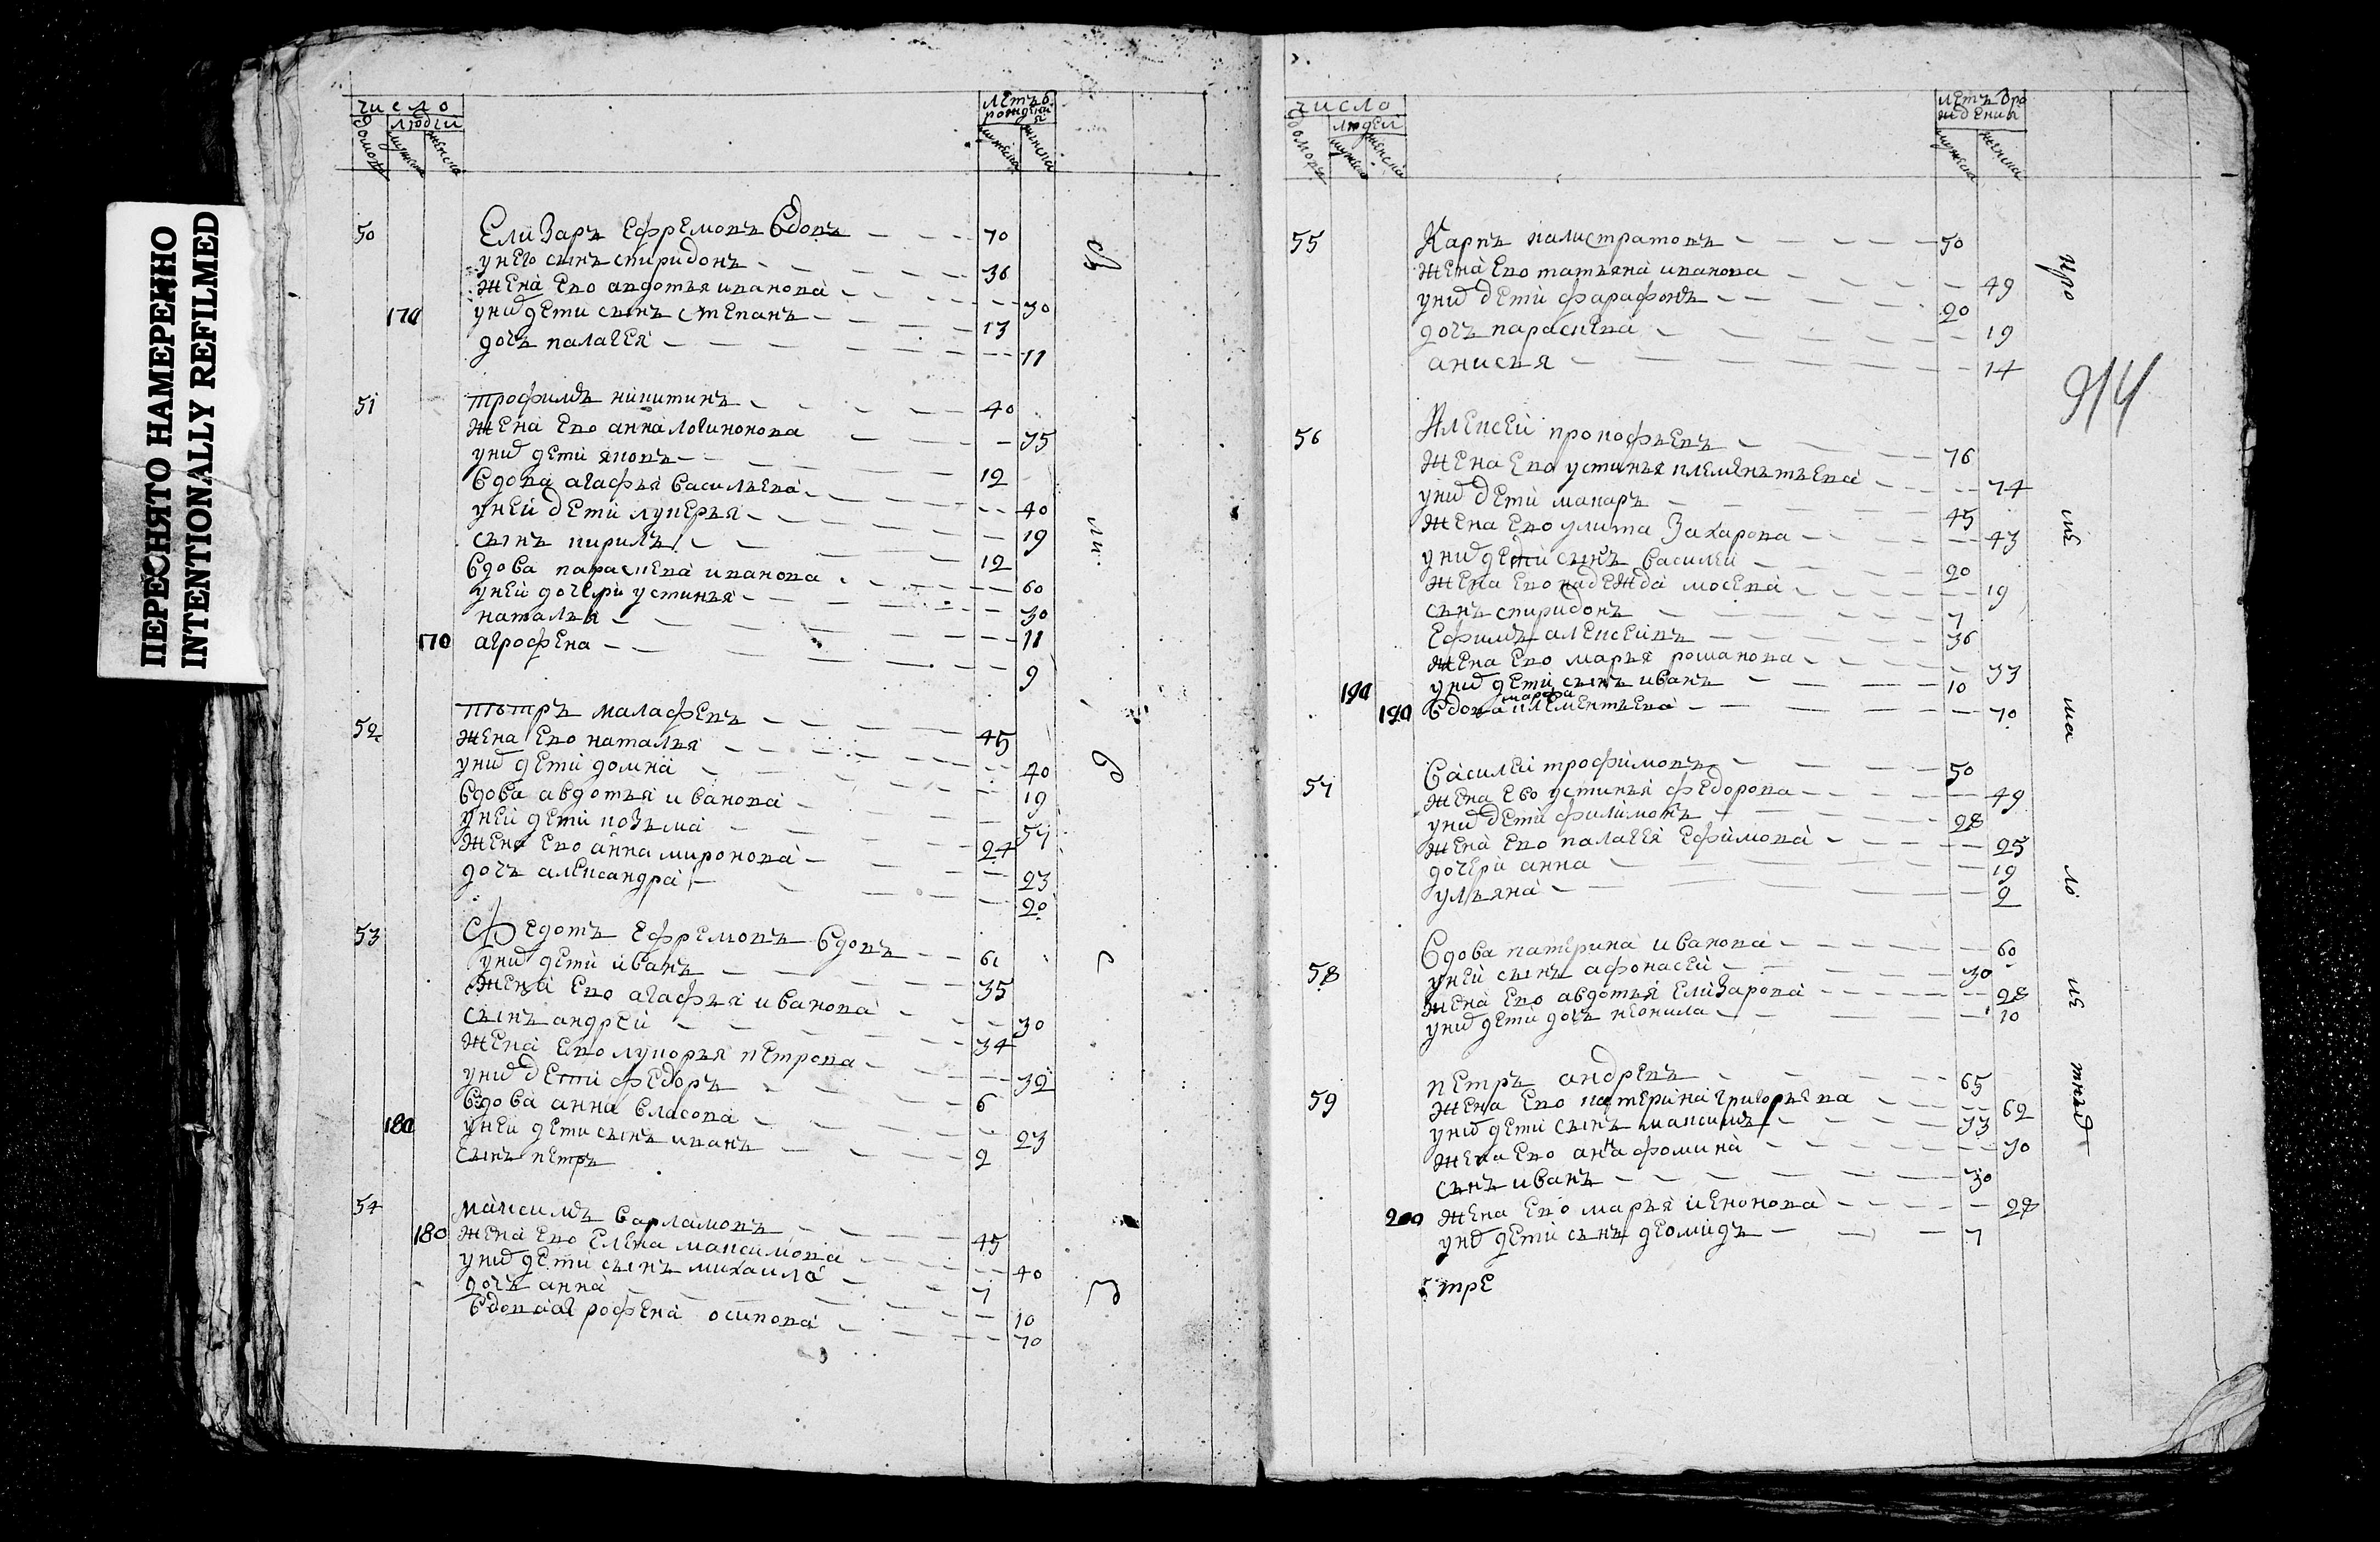 ПЕРЕСНЯТО НАМЕРЕННО
INTENTIONALLY REFILMED
число
людей
летъ
50 Елизаръ Ефремовъ вдовъ 70
у него сынъ спиридонъ 36
жена ево авдотья иванова 30
170 у них дети сынъ степанъ 13
дочь палагея 11
51 трофимъ никитинъ 40
жена ево анна логинонова 35
у них дети яковъ 12
вдова агафья васильева 40
у ней дети лукерья 19
сынъ кирилъ 12
вдова параскева иванова 60
у ней дочери устинья 30
наталья 11
170 агрофена 9
52 пътръ малафевъ 45
жена ево наталья 40
у них дети домна 19
вдова авдотья иванова 57
у ней дети козьма 24
жена ево анна миронова 23
дочь александра 20
53 Федотъ ефремовъ вдовъ 61
у них дети иванъ 35
жена ево агафья иванова 30
сынъ андрей 34
жена ево лукорья петрова 32
у них дети федоръ 6
вдова анна власова 23
180 у ней дети сынъ иванъ 2
сынъ петръ
54 максимъ варламовъ 45
180 жена ево елена максимова 40
у них дети сынъ михаила 7
дочь анна 10
вдова агрофена осипова 70
ли
число
людей
летъ В ро
ждения
55 Карпъ калистратовъ 50
жена ево татьяна иванова 49
у них дети фарафонъ 20
дочь параскева 19
анисья 14
56 Алексей прокофьевъ 76
жена ево устинья клеменътьева 74
у них дети макаръ 45
жена ево улита Захарова 43
у них дети сынъ василей 20
жена ево надежда мосева 19
сынъ спиридонъ 7
Ефимъ алексеивъ 36
жена ево марья романова 33
190 у них дети сынъ иванъ 10
марфа
190 вдова клементьева 70
57 василей трофимовъ 50
жена ево устинья федорова 49
у них дети филимонъ 28
жена ево палагея Ефимова 25
дочери анна 19
ульяна 9
58 вдова катерина иванова 60
у ней сынъ афонасей 30
жена ево авдотья елизарова 28
у них дети дочь неонила 10
59 петръ андревъ 65
жена ево катерина григорьева 62
у них дети сынъ максимъ 33
жена ево анна фомина 30
сынъ иванъ 30
200 жена ево марья иенонова 28
у них дети сынъ деомидъ 7
тре
914
про
ме
ма
ло
ле